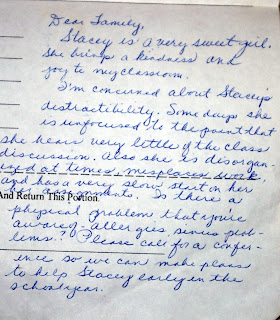 Dear Family,
Stacey is a very sweet girl.
She brings a kindness and
joy to my classroom.
I'm concerned about Stacey's
distractibility. Some days she
is unfocused to the point that
she hears very little of the class
discussion. Also she is disorgan-
ized at times, misplaces work
and has a very slow start on her
assignments. Is there a
And Return This Portion
physical problem that you're
aware of - allergies, sinus prob-
lems? Please call for a confer-
ence so we can make plans
to help Stacey early in the
school year.